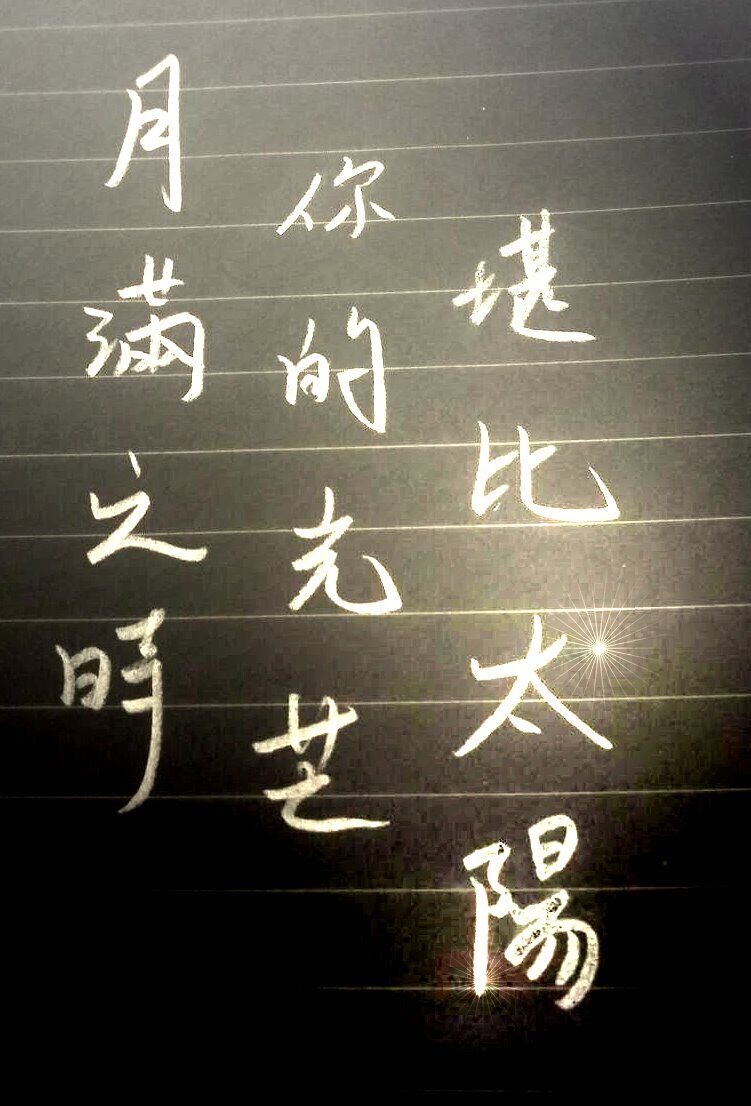 月滿之時
你的光芒
堪比太陽